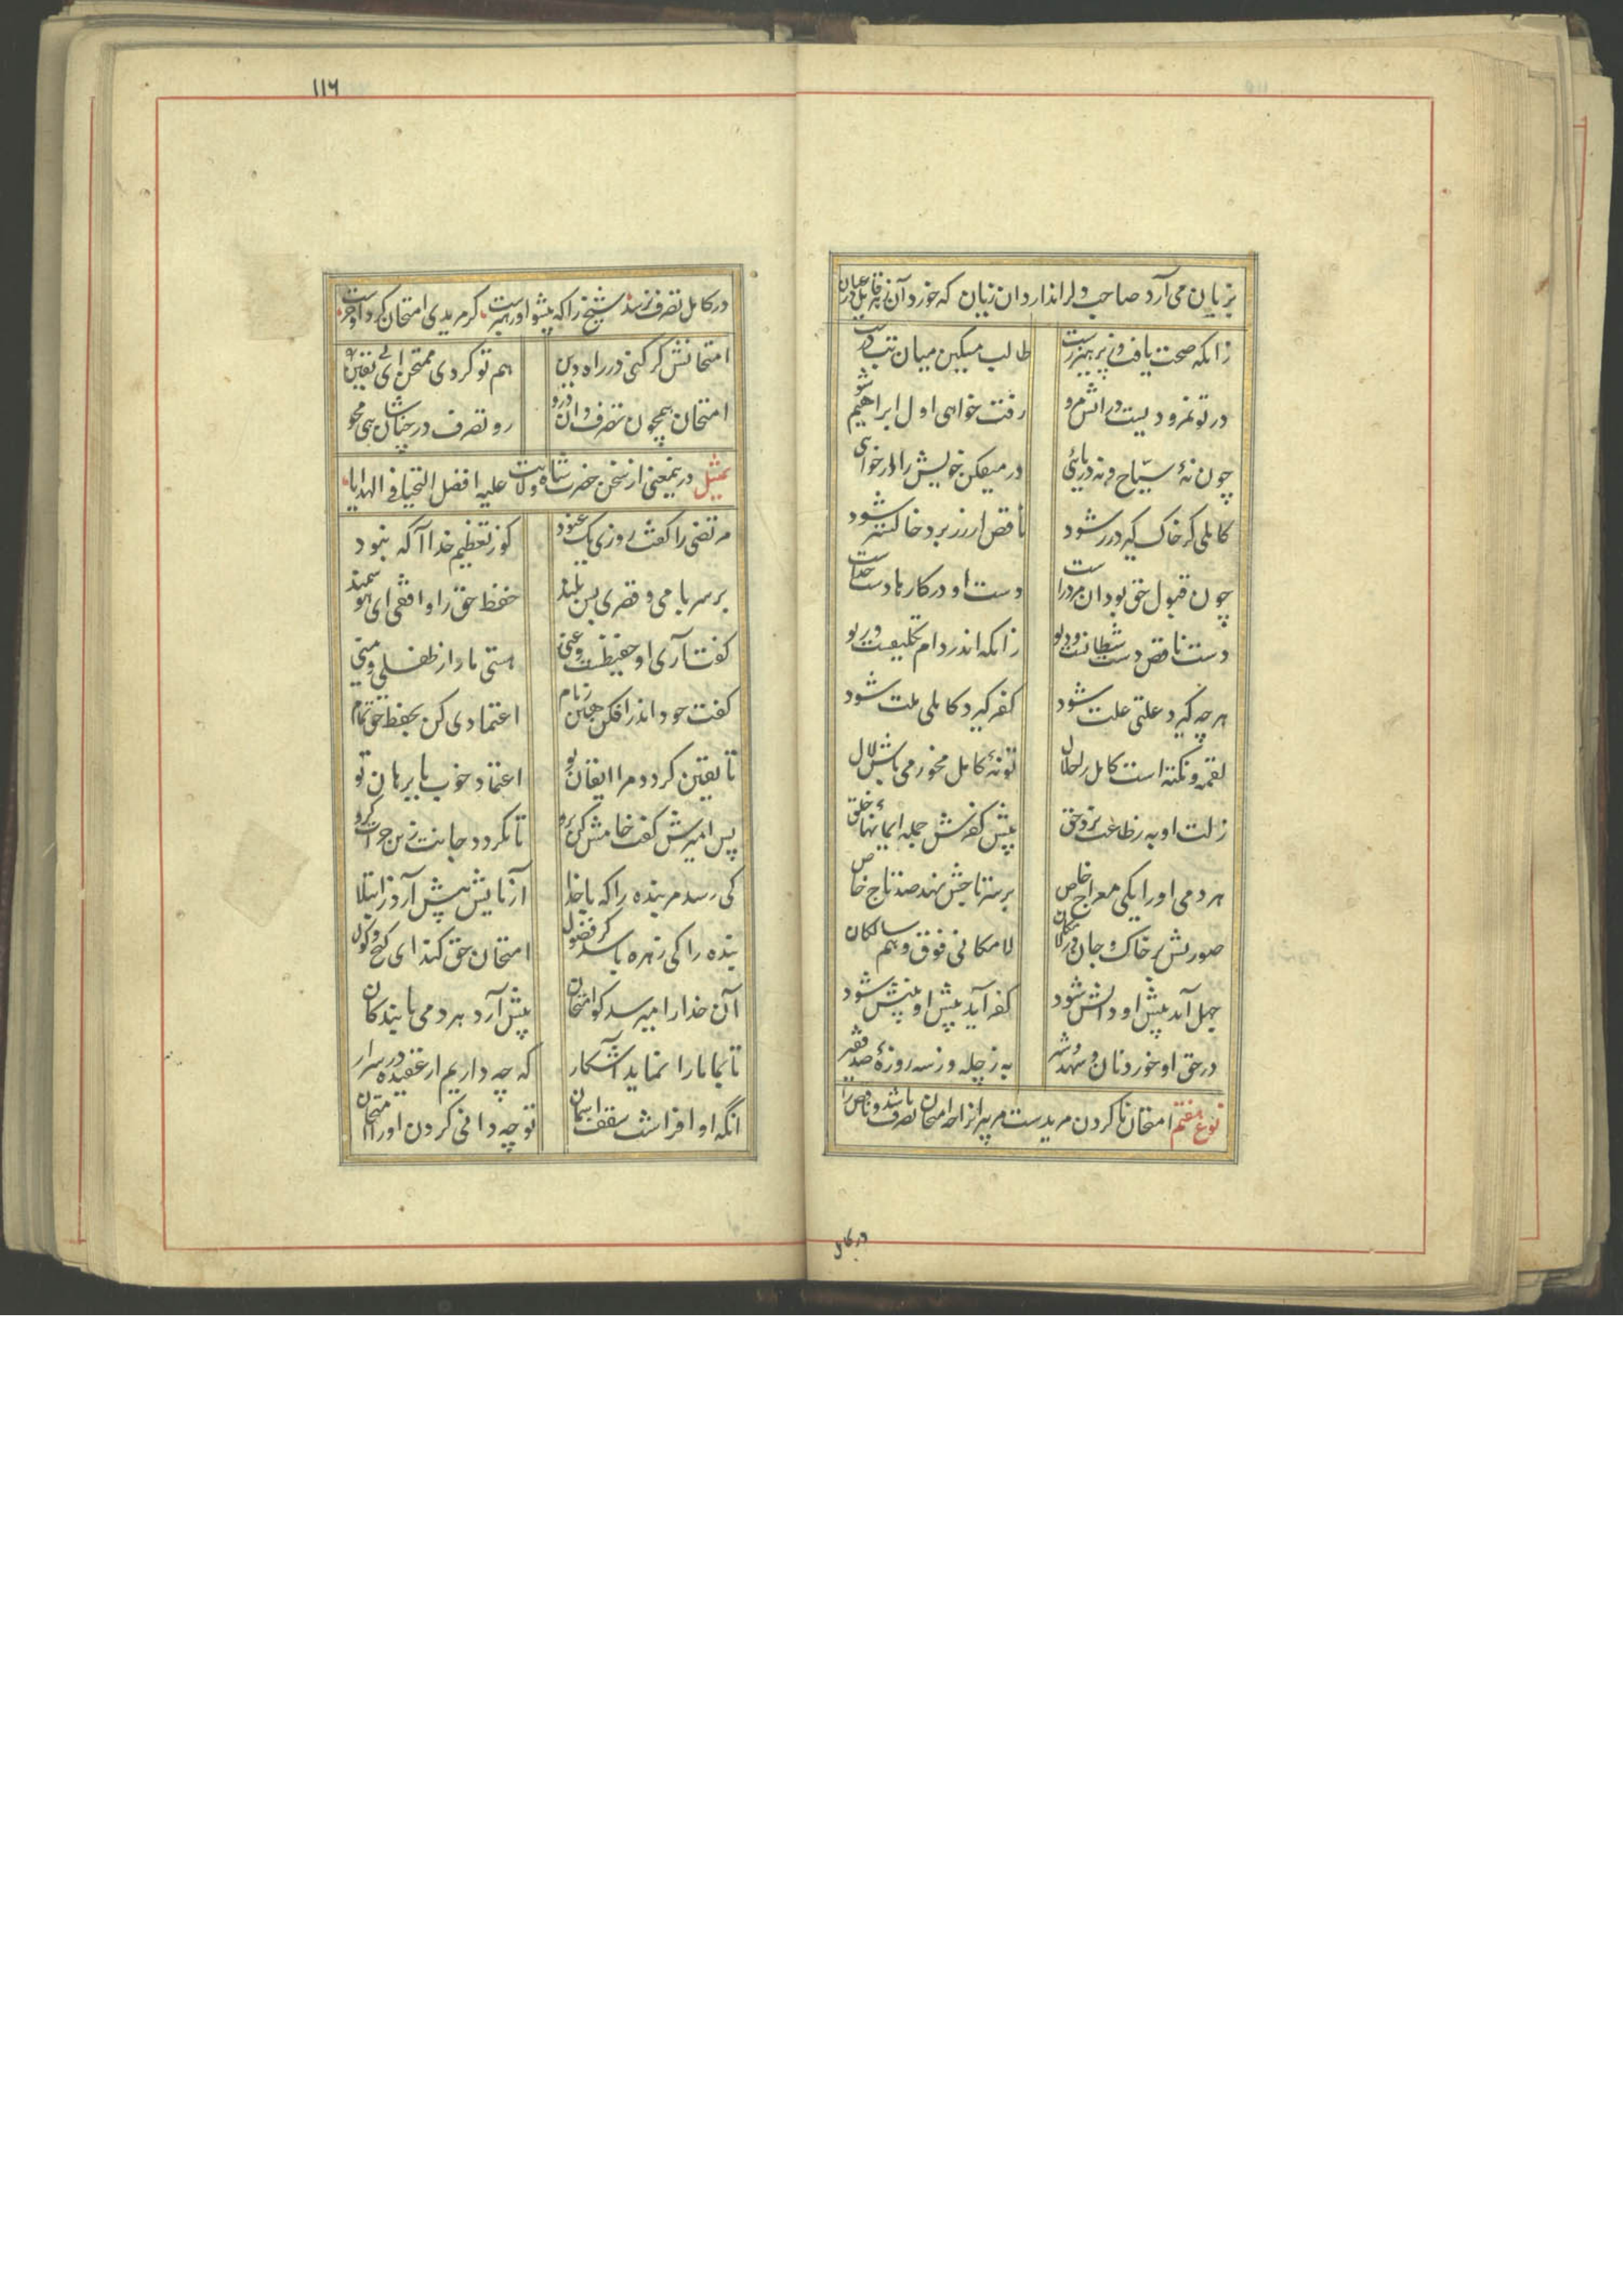 بزیان می آرد صاحب دلرا ندارد ان زیان که خورد آن زهر قاتل عیان
زانکه صحت یافت وز پرهیز رست طالب مسکین میان تب درست
در تو نمرودیست در آتش مرو رفت خواهی اول ابراهیم شو
چون نۀ سیّاح و نه دریائی در میفکن خویش را از خودرائی
کاملی کر خاک کیرد زر شود ناقص ار زر برد خاکستر شود
چون قبول حق بود ان مرد راست دست او در کارها دست خداست
دست ناقص دست شیطانست و دیو زانکه اندر دام تکلیفست و ریو
هرچه کیرد علتی علت شود کفر کیرد کاملی ملت شود
لقمه و نکته است کامل را حلال تو نۀ کامل مخور می باش لال
زلت او به ز طاعت نزد حق پیش کفرش جمله ایمانها خلق
هر دمی او را یکی معراج خاص بر سر تاجش نهد صد تاج خاص
صورتش بر خاک و جان در لامکان لامکانی فوق وهم سالکان
جهل آید پیش او دانش شود کفر آید پیش او بینش شود
در حق او خورد نان و شهد و شیر به ز چله وز سه روزۀ صد فقیر
نوع هفتم امتحان ناکردن مریدست مر پیر را زانکه امتحان تصرف باشد و ناقص را
در کامل
۱۱۶
در کامل تصرف نرسد شیخ را که پیشوا و رهبرست کر مریدی امتحان کرد او خرست
امتحانش کر کنی در راه دین هم تو کردی ممتحن ای بی یقین
امتحان همچون تصرف دان درو رو تصرف در چنان شاهی مجو
تمثیل درینمعنی از سخن حضرت شاه ولایت علیه افضل التحیات و الهدایا
مرتضی را کفت روزی یک عنود کو ز تعظیم خدا آکه نبود
بر سر بامی و قصری بس بلند حفظ حق را واقفی ای هوشمند
کفت آری او حفیظست و غنی هستی ما را ز طفلی و منی
کفت خود را اندر افکن هین ز بام اعتمادی کن بحفظ حق تمام
تا یقین کردد مرا ایقان تو اعتماد خوب با برهان تو
پس امیرش کفت خامش کن برو تا نکردد جانت زین جرأت کرو
کی رسد مر بنده را که با خدا آزمایش پیش آرد ز ابتلا
بنده را کی زهره باشد کز فضول امتحان حق کند ای کیج کول
آن خدا را میرسد کو امتحان پیش آرد هر دمی با بندکان
تا بما ما را نماید آشکار که چه داریم از عقیده در سرار
انکه او افراشت سقف اسمان تو چه دانی کردن او را امتحان